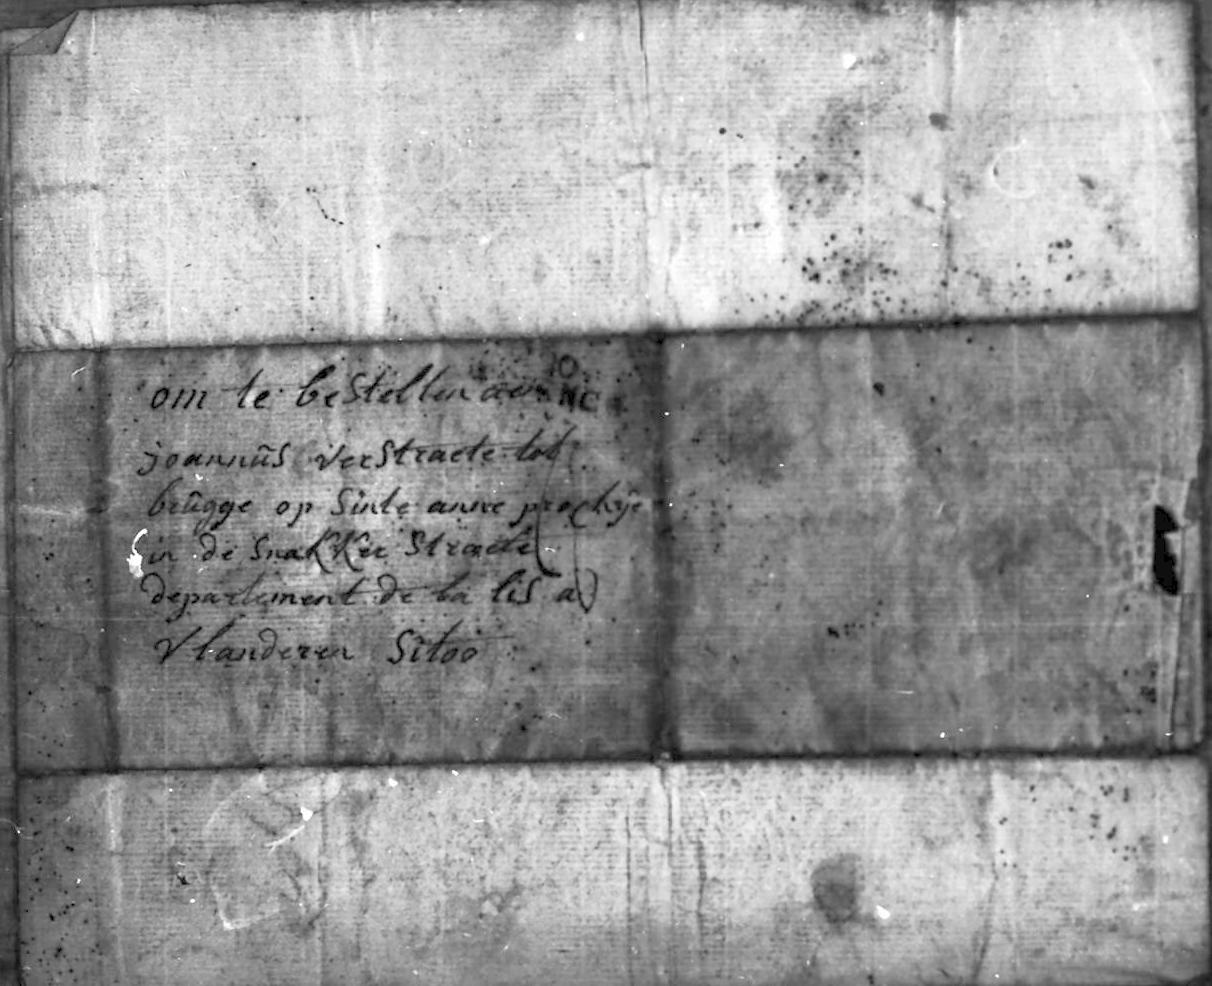 om te bestellen aen
joannŭs verstraete tot
brŭgge op Sinte anne prochije
in de Snakker Straete
departement de la lis a
Vlanderen Sitoo